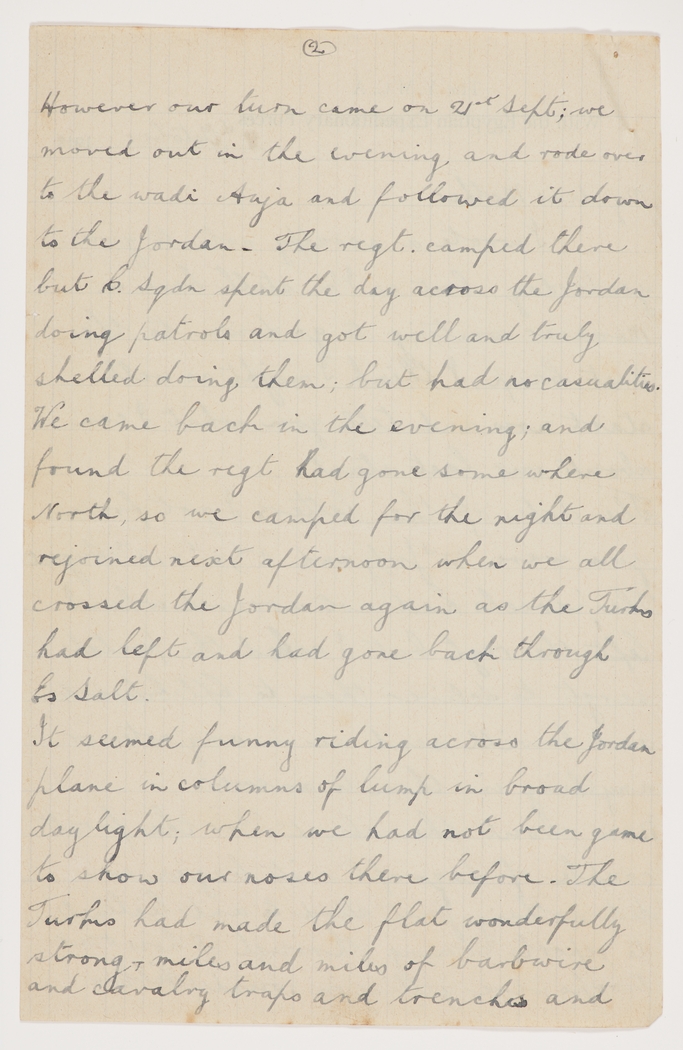 (2)
However our turn came on 21st Sept; we
moved out in the evening and rode over
to the wadi Auja and followed it down
to the Jordan - The regt. camped there
but C. Sqdn spent the day across the Jordan
doing patrols and got well and truly
shelled doing them; but had no casualities.
We came back in the evening; and
found the regt had gone some where
North, so we camped for the night and
rejoined next afternoon when we all
crossed the Jordan again as the Turks
had left and had gone back through
Es Salt.
It seemed funny riding across the Jordan
plane in columns of lump in broad
day light; when we had not been game
to show our noses there before. The
Turks had made the flat wonderfully
strong, miles and miles of barbwire
and cavalry traps and trenches and